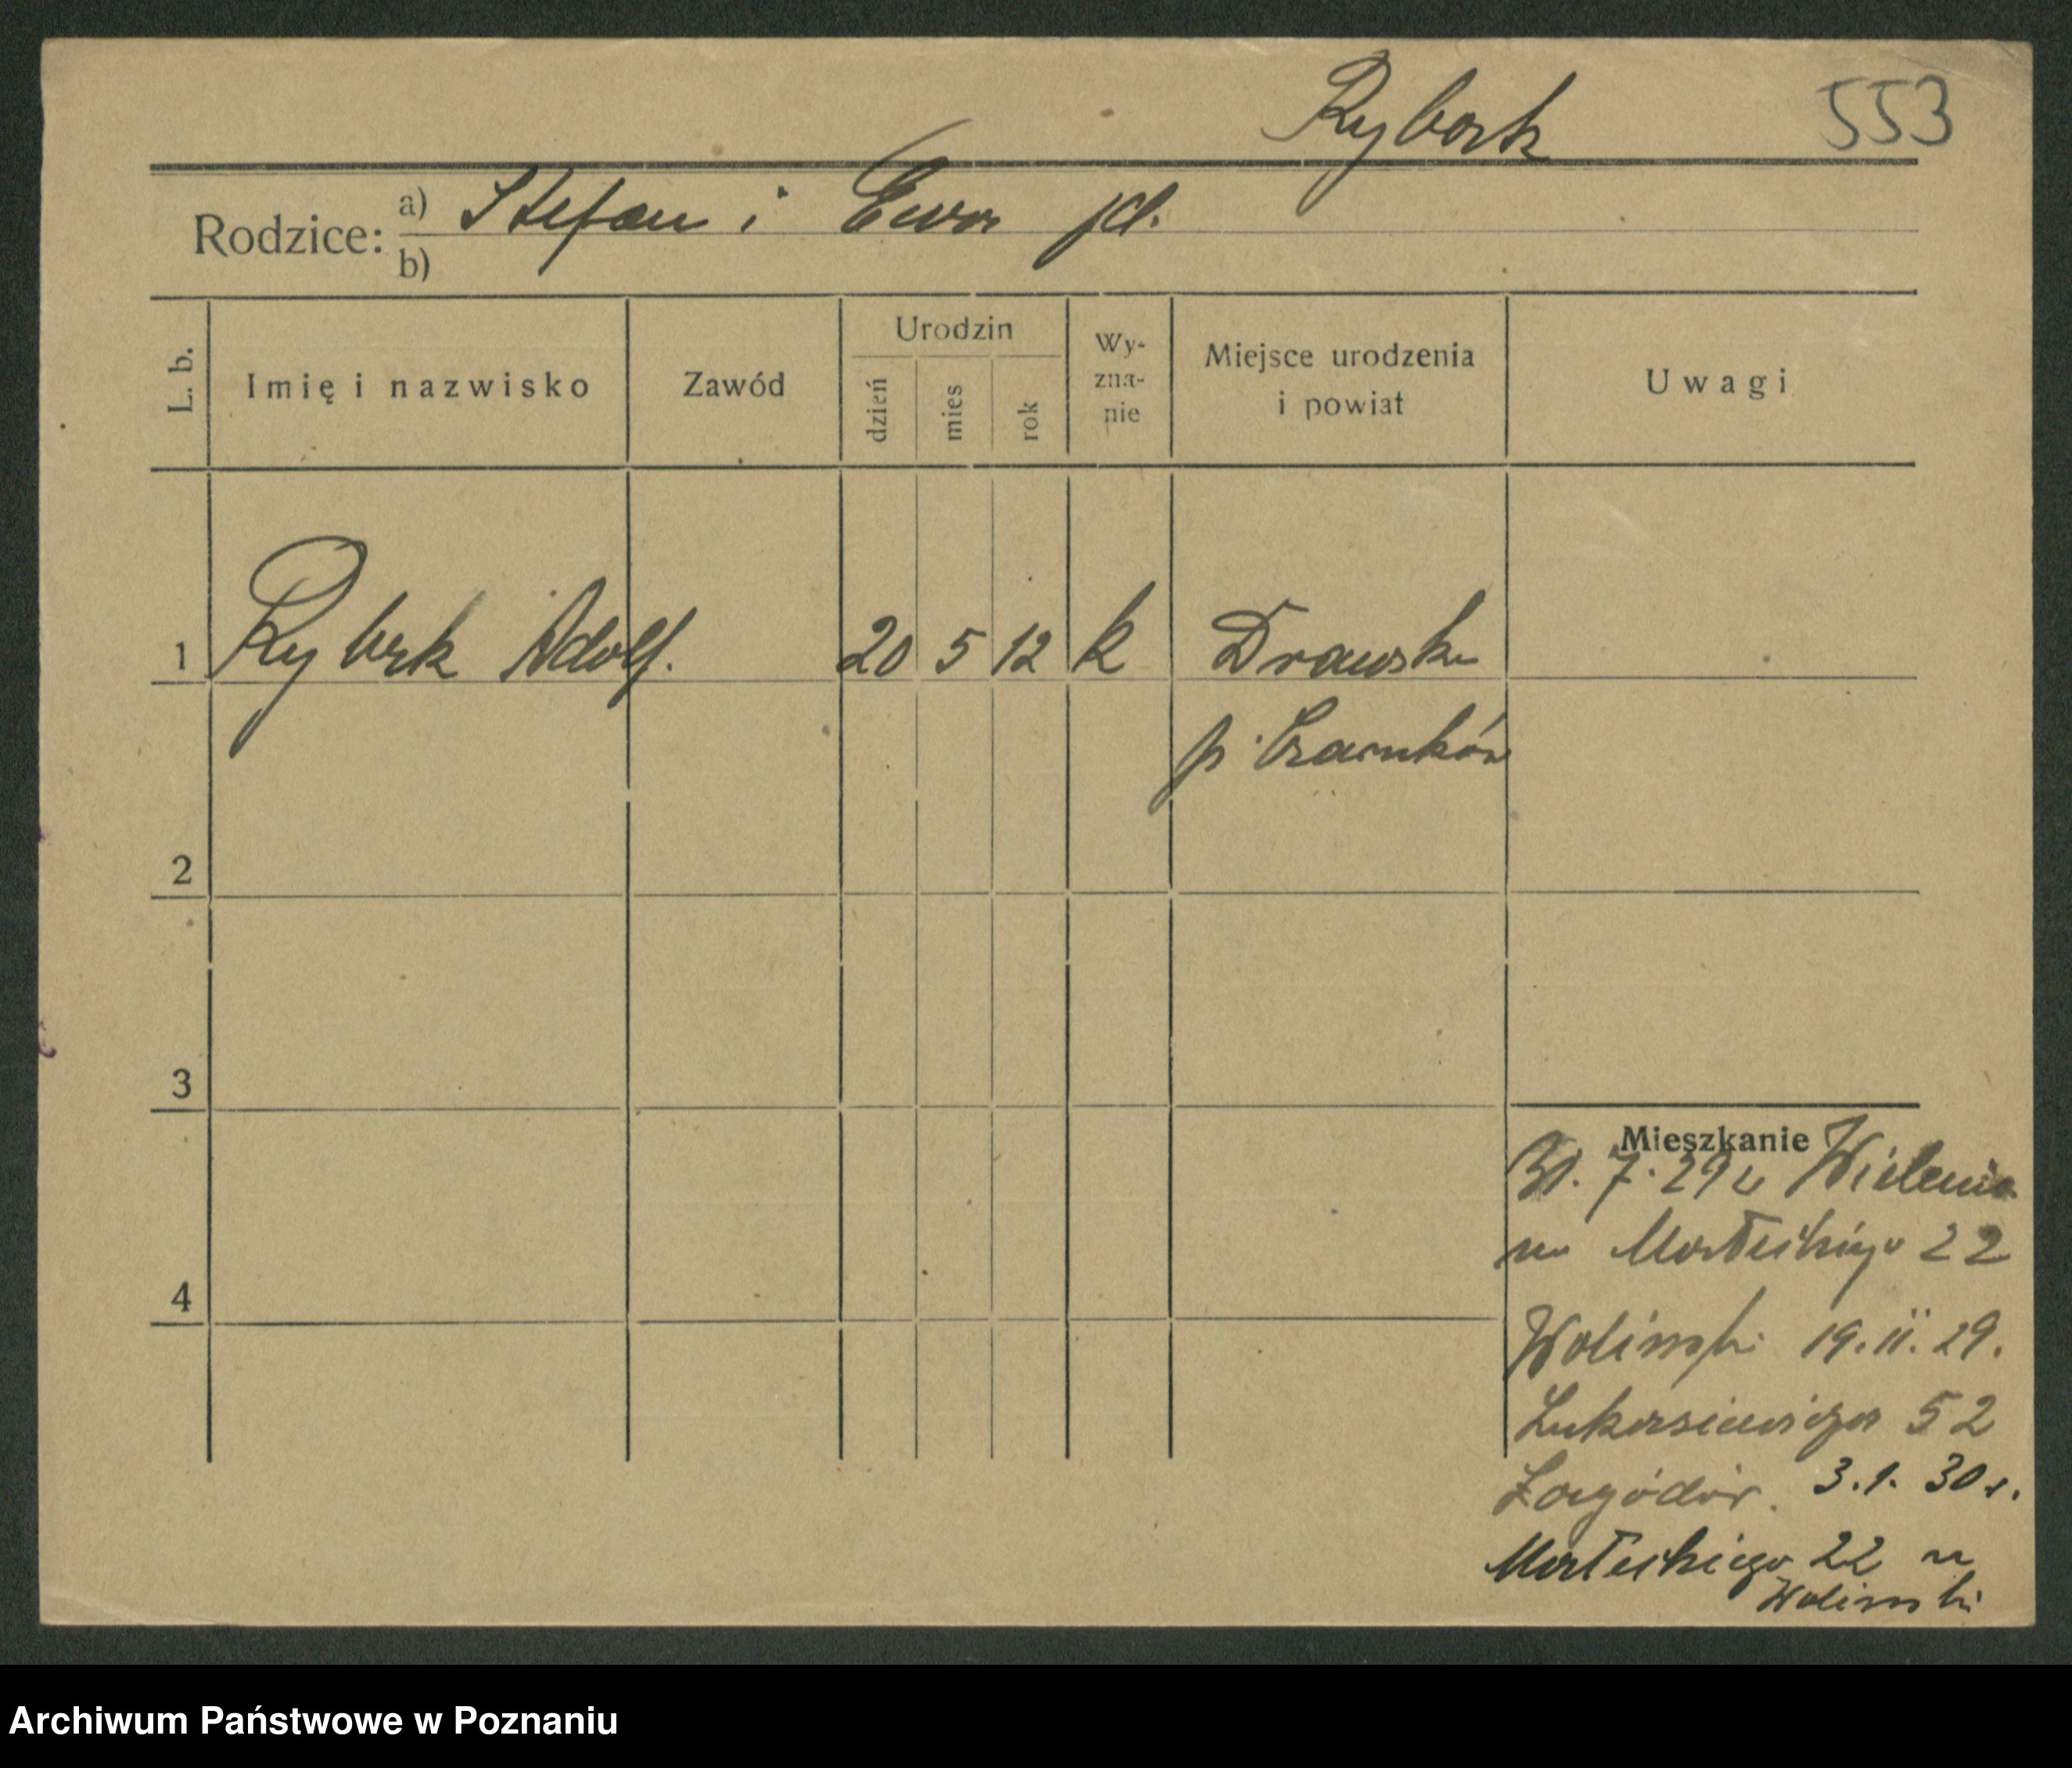 Rybak 553
Rodzice: a) Stefan i Ewa pl.
b)
L. b. Imię i nazwisko Zawód Urodzin dzień mies rok Wy-zna-nie Miejsce urodzenia i powiat Uwagi
1 Rybak Adolf. 20 5 12 k Drawsko
p. Czarnków
2
3
4
Mieszkanie
31. 7. 29 z Wielenia
na Małeckiego 22
Woliński 19.11.29.
Łukasiewicza 52
3.1.30r.
Małeckiego 22 u
Woliński
Archiwum Państwowe w Poznaniu